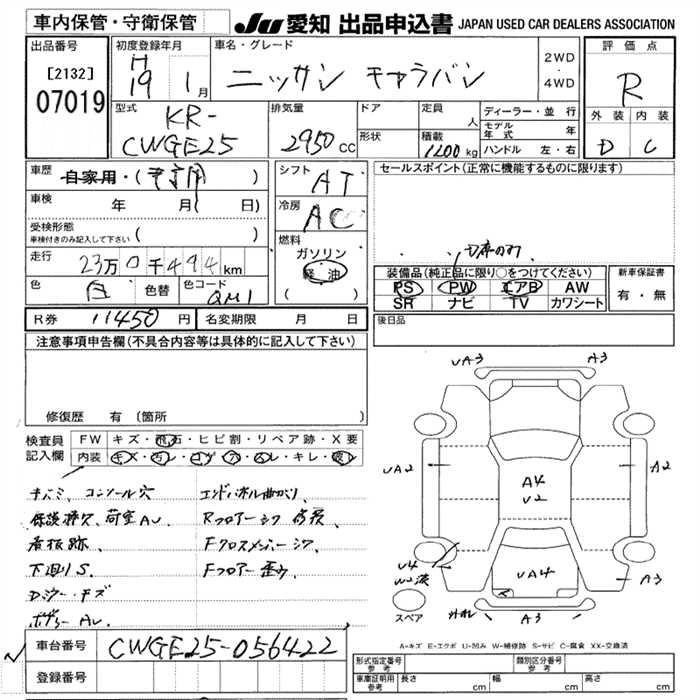 車内保管・守衛保管
JU 愛知 出品申込書 JAPAN USED CAR DEALERS ASSOCIATION
出品番号
[2132]
07019
初度登録年月
H
19 1月
車名・グレード
ニッサン キャラバン
2WD
・
4WD
評価点
R
外装 内装
D C
型式
KR-
CWGE25
排気量
2950 cc
ドア
形状
定員
人
積載
1200 kg
ディーラー・並行
モデル年式 年
ハンドル 左・右
車歴
自家用・( )
車検 年 月( 日)
受検形態
車検付きのみ記入して下さい ( )
走行
23万0千494 km
色 白 色替 色コード QM1
シフト AT
冷房 AC
燃料
ガソリン
軽油
( )
セールスポイント(正常に機能するものに限ります)
装備品(純正品に限り○をつけてください)
PS PW エアB AW
SR ナビ TV カワシート
新車保証書
有・無
R券 11450 円 名変期限 月 日
後日品
注意事項申告欄(不具合内容等は具体的に記入して下さい)
修復歴 有 (箇所 )
検査員
記入欄
FW キズ・飛石・ヒビ割・リペア跡・X要
内装 キズ・汚レ・コゲ・穴・スレ・キレ・破レ
キバミ、コンソール穴
荷室AU
看板跡、
下回りS
エンドパネル曲がり
Rフロアーシワ 修復、
Fクロスメンバーシワ
Fフロアー歪ウ
UA3 A3
UA2 A2
A4
U2
UA4
U4
W2
A3
A3
スペア
A=キズ E=エクボ U=凹み W=補修跡 S=サビ C=腐食 XX=交換済
車台番号 CWGE25-056422
登録番号
形式指定番号
参考
類別区分番号
参考
車庫証明用
参考
長さ cm 幅 cm 高さ cm